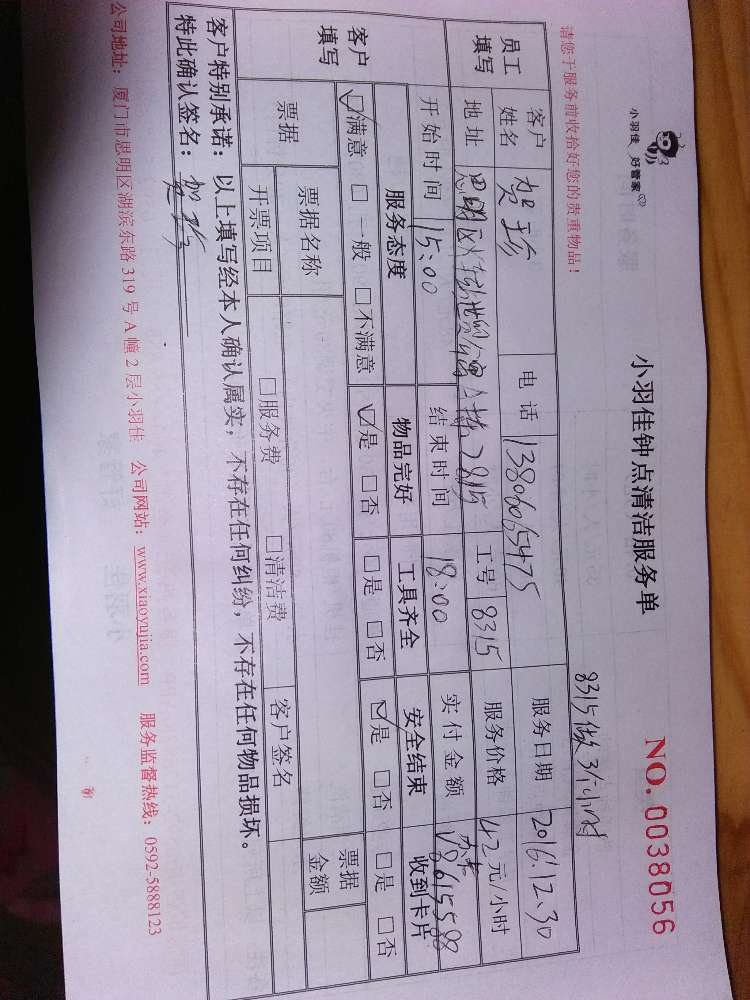 小羽佳 好管家
小羽佳钟点清洁服务单
NO. 0038056
请您于服务前收拾好您的贵重物品!
8315做3个小时
员工填写 客户姓名 贺珍 电话 13806055475 服务日期 2016.12.30
地址 思明区 世贸 2815 工号 8315 服务价格 42元/小时
开始时间 15:00 结束时间 18:00 实付金额
客户填写 服务态度 物品完好 工具齐全 安全结束 收到卡片
☑满意 □一般 □不满意 ☑是 □否 □是 □否 ☑是 □否 □是 □否
票据 票据名称 客户签名 票据金额
开票项目 □服务费 □清洁费
客户特别承诺:以上填写经本人确认属实,不存在任何纠纷,不存在任何物品损坏。
特此确认签名:
公司地址:厦门市思明区湖滨东路 319 号 A 幢 2 层小羽佳 公司网站:www.xiaoyujia.com 服务监督热线:0592-5888123